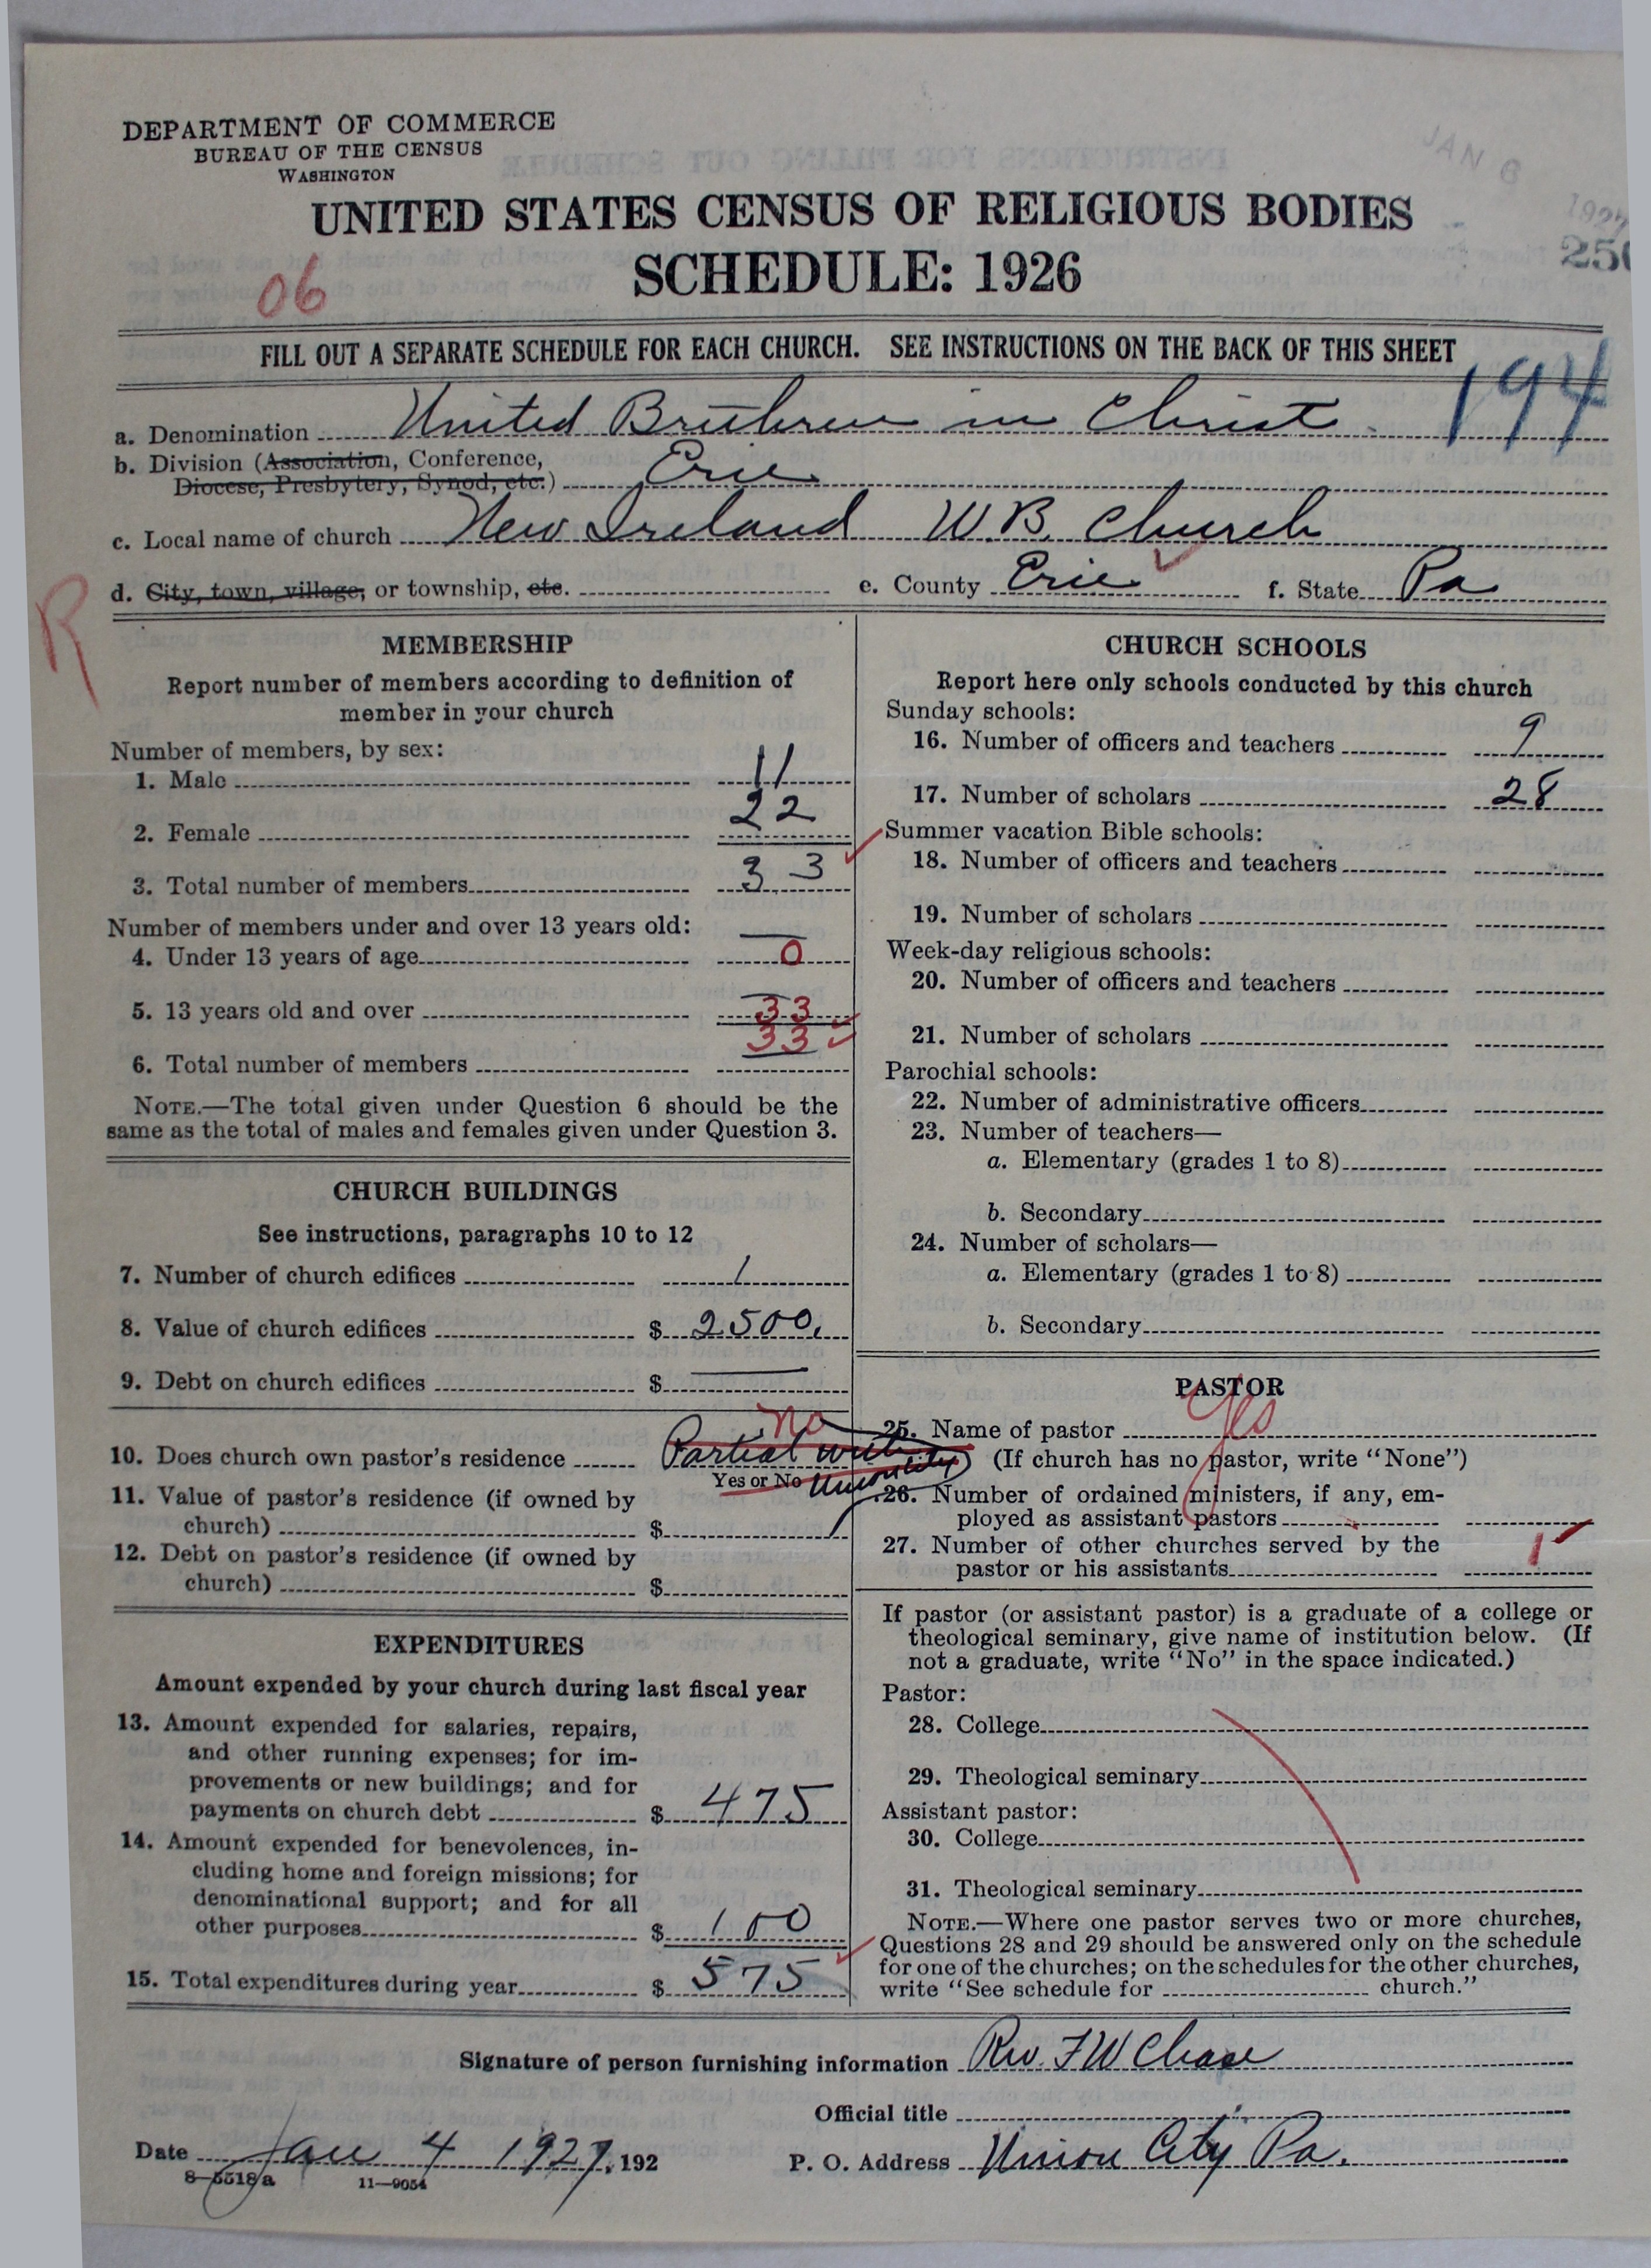 DEPARTMENT OF COMMERCE
BUREAU OF THE CENSUS
WASHINGTON
JAN 6 1927
250
UNITED STATES CENSUS OF RELIGIOUS BODIES
SCHEDULE: 1926
06
FILL OUT A SEPARATE SCHEDULE FOR EACH CHURCH. SEE INSTRUCTIONS ON THE BACK OF THIS SHEET
194
a. Denomination United Brethren in Christ
b. Division (Association, Conference, Diocese, Presbytery, Synod, etc.) Erie
c. Local name of church New Ireland U.B. Church
d. City, town, village, or township, etc. e. County Erie f. State Pa
R
MEMBERSHIP
Report number of members according to definition of
member in your church
Number of members, by sex:
1. Male 11
2. Female 22
3. Total number of members 33
Number of members under and over 13 years old:
4. Under 13 years of age 0
5. 13 years old and over 33
6. Total number of members 33
NOTE.—The total given under Question 6 should be the
same as the total of males and females given under Question 3.
CHURCH BUILDINGS
See instructions, paragraphs 10 to 12
7. Number of church edifices 1
8. Value of church edifices $ 2500.
9. Debt on church edifices $
10. Does church own pastor's residence No Partial with Union City
Yes or No
11. Value of pastor's residence (if owned by
church) $
12. Debt on pastor's residence (if owned by
church) $
EXPENDITURES
Amount expended by your church during last fiscal year
13. Amount expended for salaries, repairs,
and other running expenses; for im-
provements or new buildings; and for
payments on church debt $ 475
14. Amount expended for benevolences, in-
cluding home and foreign missions; for
denominational support; and for all
other purposes $ 100
15. Total expenditures during year $ 575
CHURCH SCHOOLS
Report here only schools conducted by this church
Sunday schools:
16. Number of officers and teachers 9
17. Number of scholars 28
Summer vacation Bible schools:
18. Number of officers and teachers
19. Number of scholars
Week-day religious schools:
20. Number of officers and teachers
21. Number of scholars
Parochial schools:
22. Number of administrative officers
23. Number of teachers—
a. Elementary (grades 1 to 8)
b. Secondary
24. Number of scholars—
a. Elementary (grades 1 to 8)
b. Secondary
PASTOR
25. Name of pastor Yes
(If church has no pastor, write "None")
26. Number of ordained ministers, if any, em-
ployed as assistant pastors
27. Number of other churches served by the
pastor or his assistants 1
If pastor (or assistant pastor) is a graduate of a college or
theological seminary, give name of institution below. (If
not a graduate, write "No" in the space indicated.)
Pastor:
28. College
29. Theological seminary
Assistant pastor:
30. College
31. Theological seminary
NOTE.—Where one pastor serves two or more churches,
Questions 28 and 29 should be answered only on the schedule
for one of the churches; on the schedules for the other churches,
write "See schedule for church."
Signature of person furnishing information Rev. F W Chase
Official title
Date Jan 4 1927, 192 P. O. Address Union City Pa.
8—5518 a 11—9054